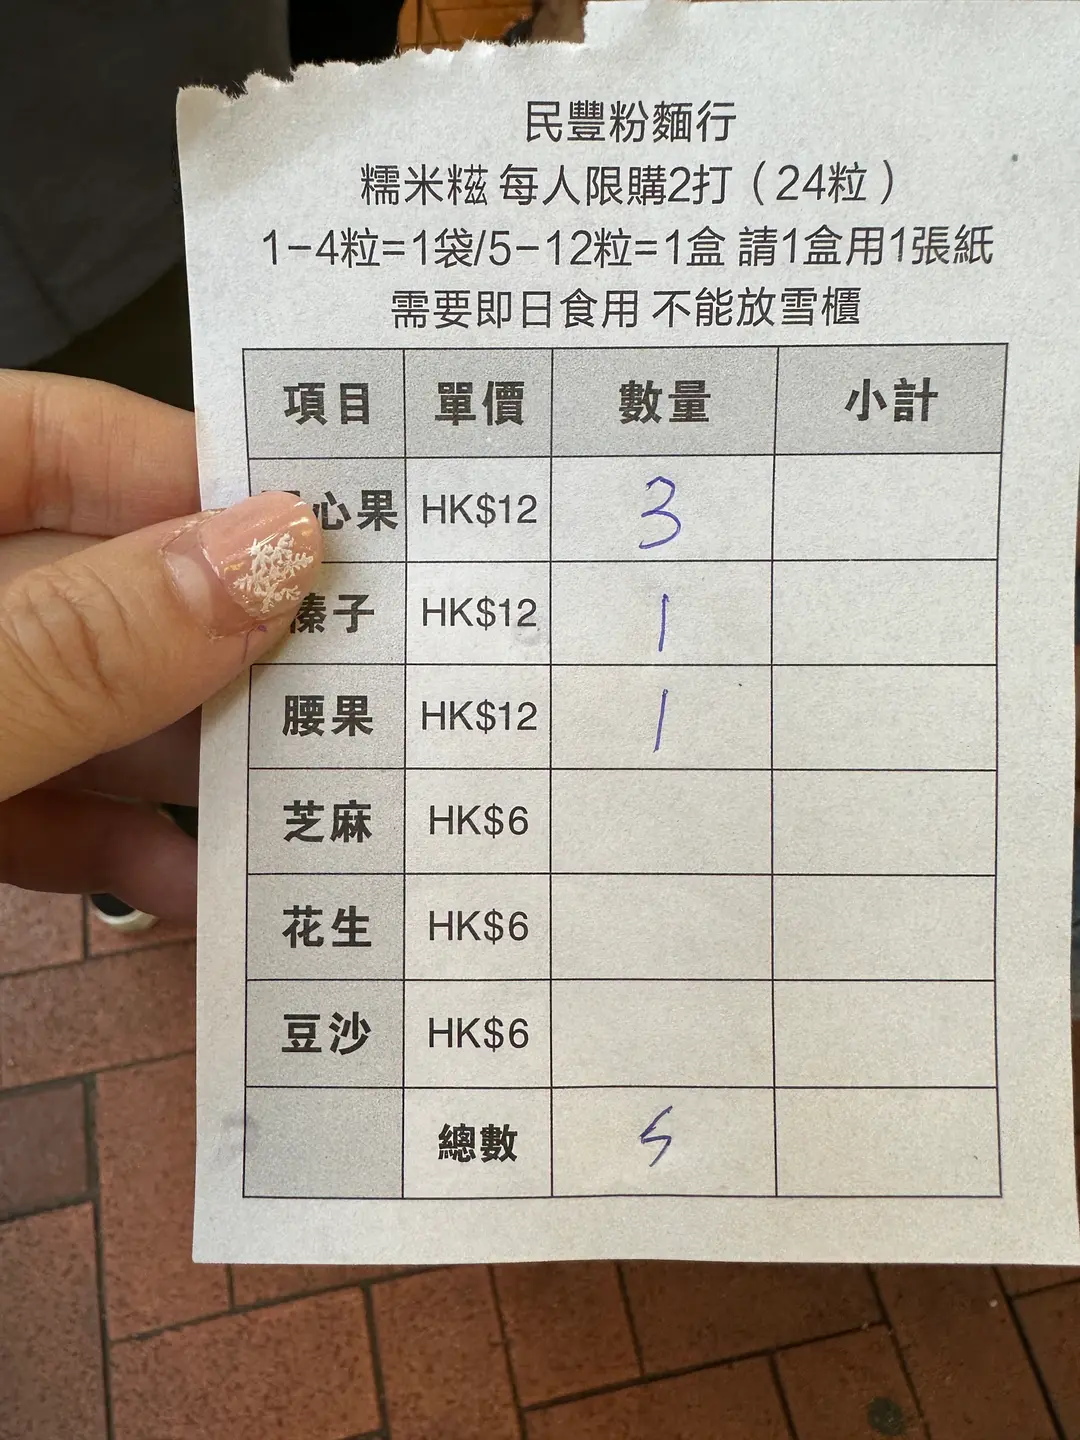 民豐粉麵行
糯米糍 每人限購2打（24粒）
1-4粒=1袋/5-12粒=1盒 請1盒用1張紙
需要即日食用 不能放雪櫃
項目 單價 數量 小計
心果 HK$12 3
榛子 HK$12 1
腰果 HK$12 1
芝麻 HK$6
花生 HK$6
豆沙 HK$6
總數 5